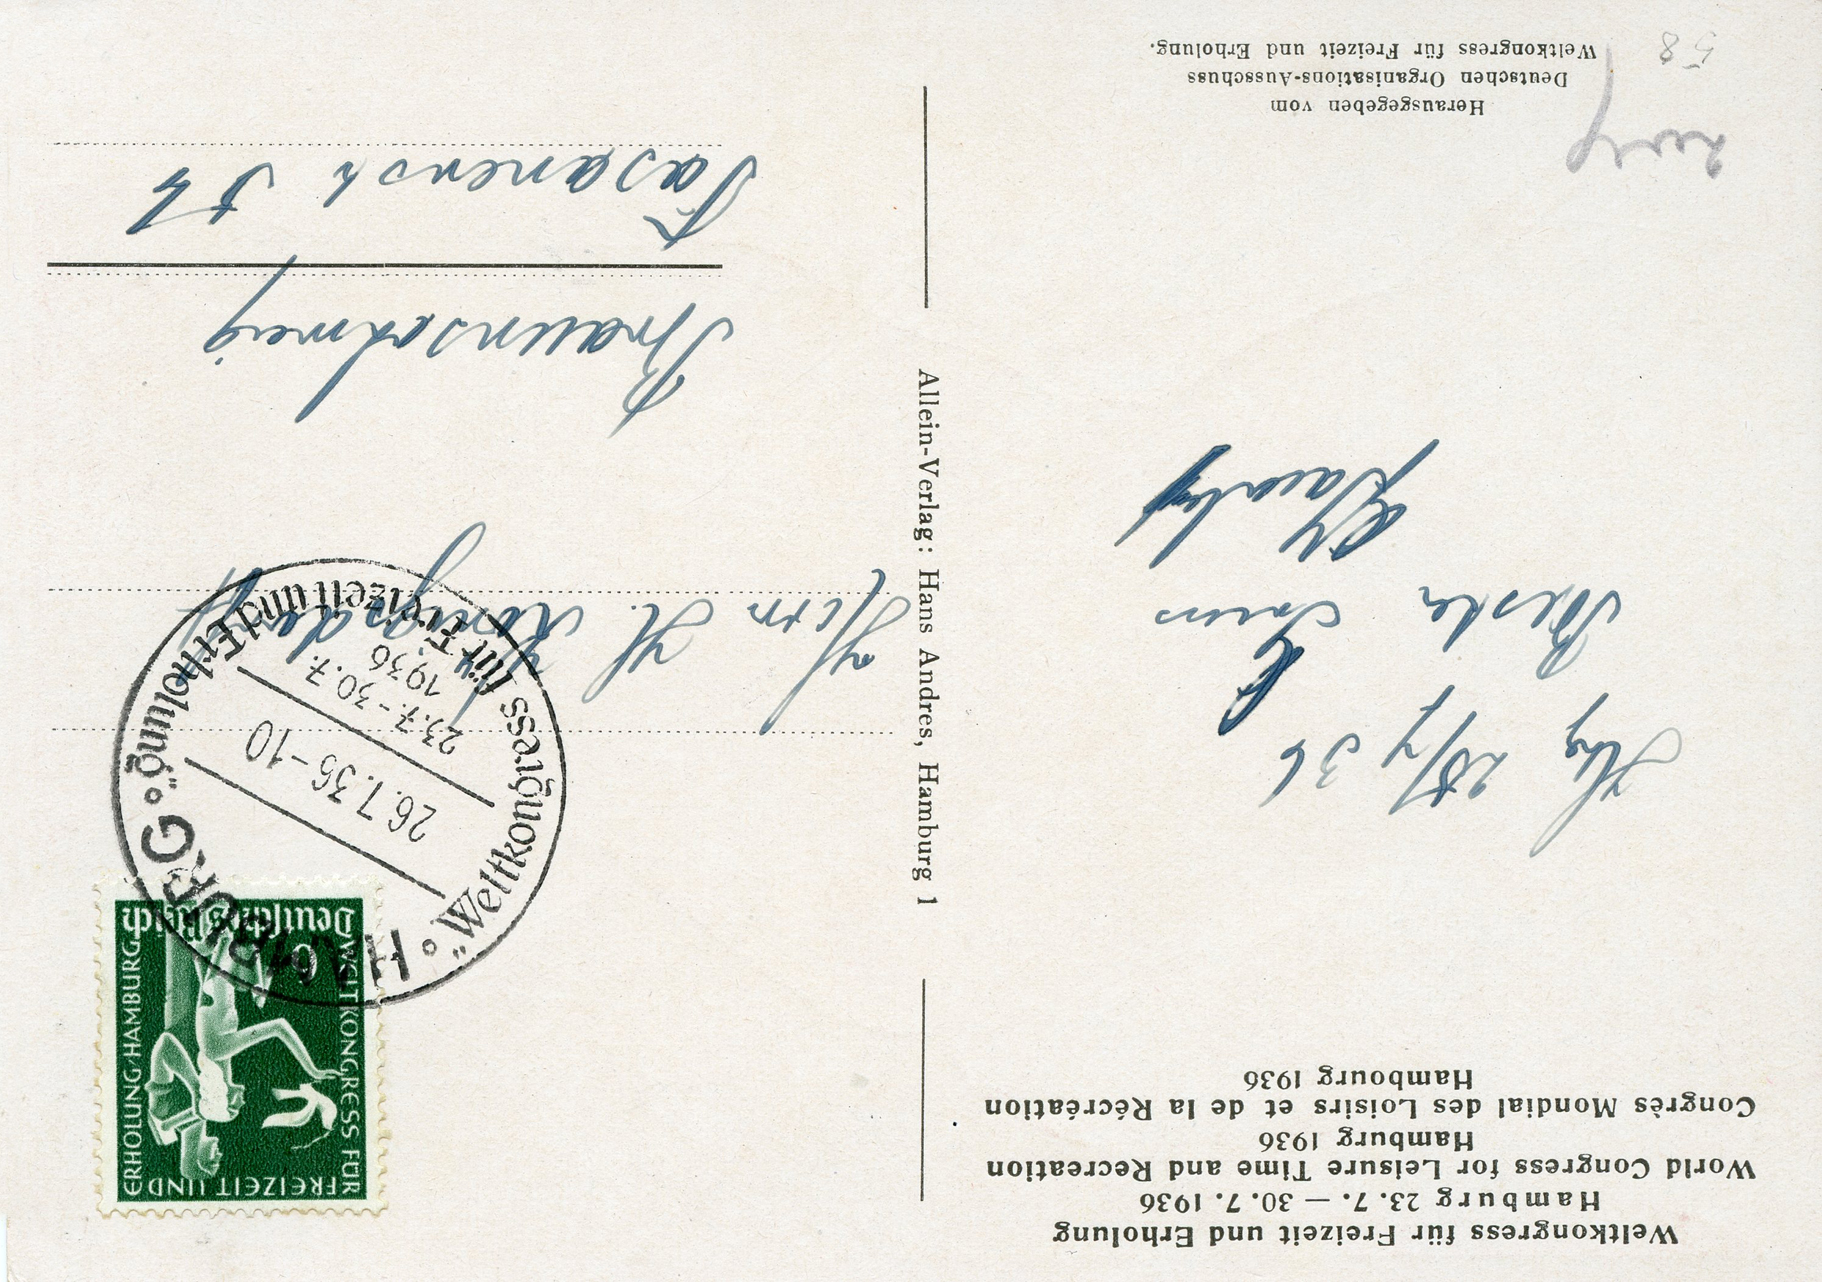 Weltkongress für Freizeit und Erholung
Hamburg 23. 7. — 30. 7. 1936
World Congress for Leisure Time and Recreation
Hamburg 1936
Congrès Mondial des Loisirs et de la Récréation
Hambourg 1936
Hbg 25/7 36
Herausgegeben vom
Deutschen Organisations-Ausschuss
Weltkongress für Freizeit und Erholung.
58
Allein-Verlag: Hans Andres, Hamburg 1
WELTKONGRESS FÜR
FREIZEIT UND
ERHOLUNG·HAMBURG
6
Deutsches Reich
HAMBURG
"Weltkongress für Freizeit und Erholung"
26.7.36-10
23.7.-30.7.
1936
Herrn H. Königsdorf
Braunschweig
Fasanenstr 54